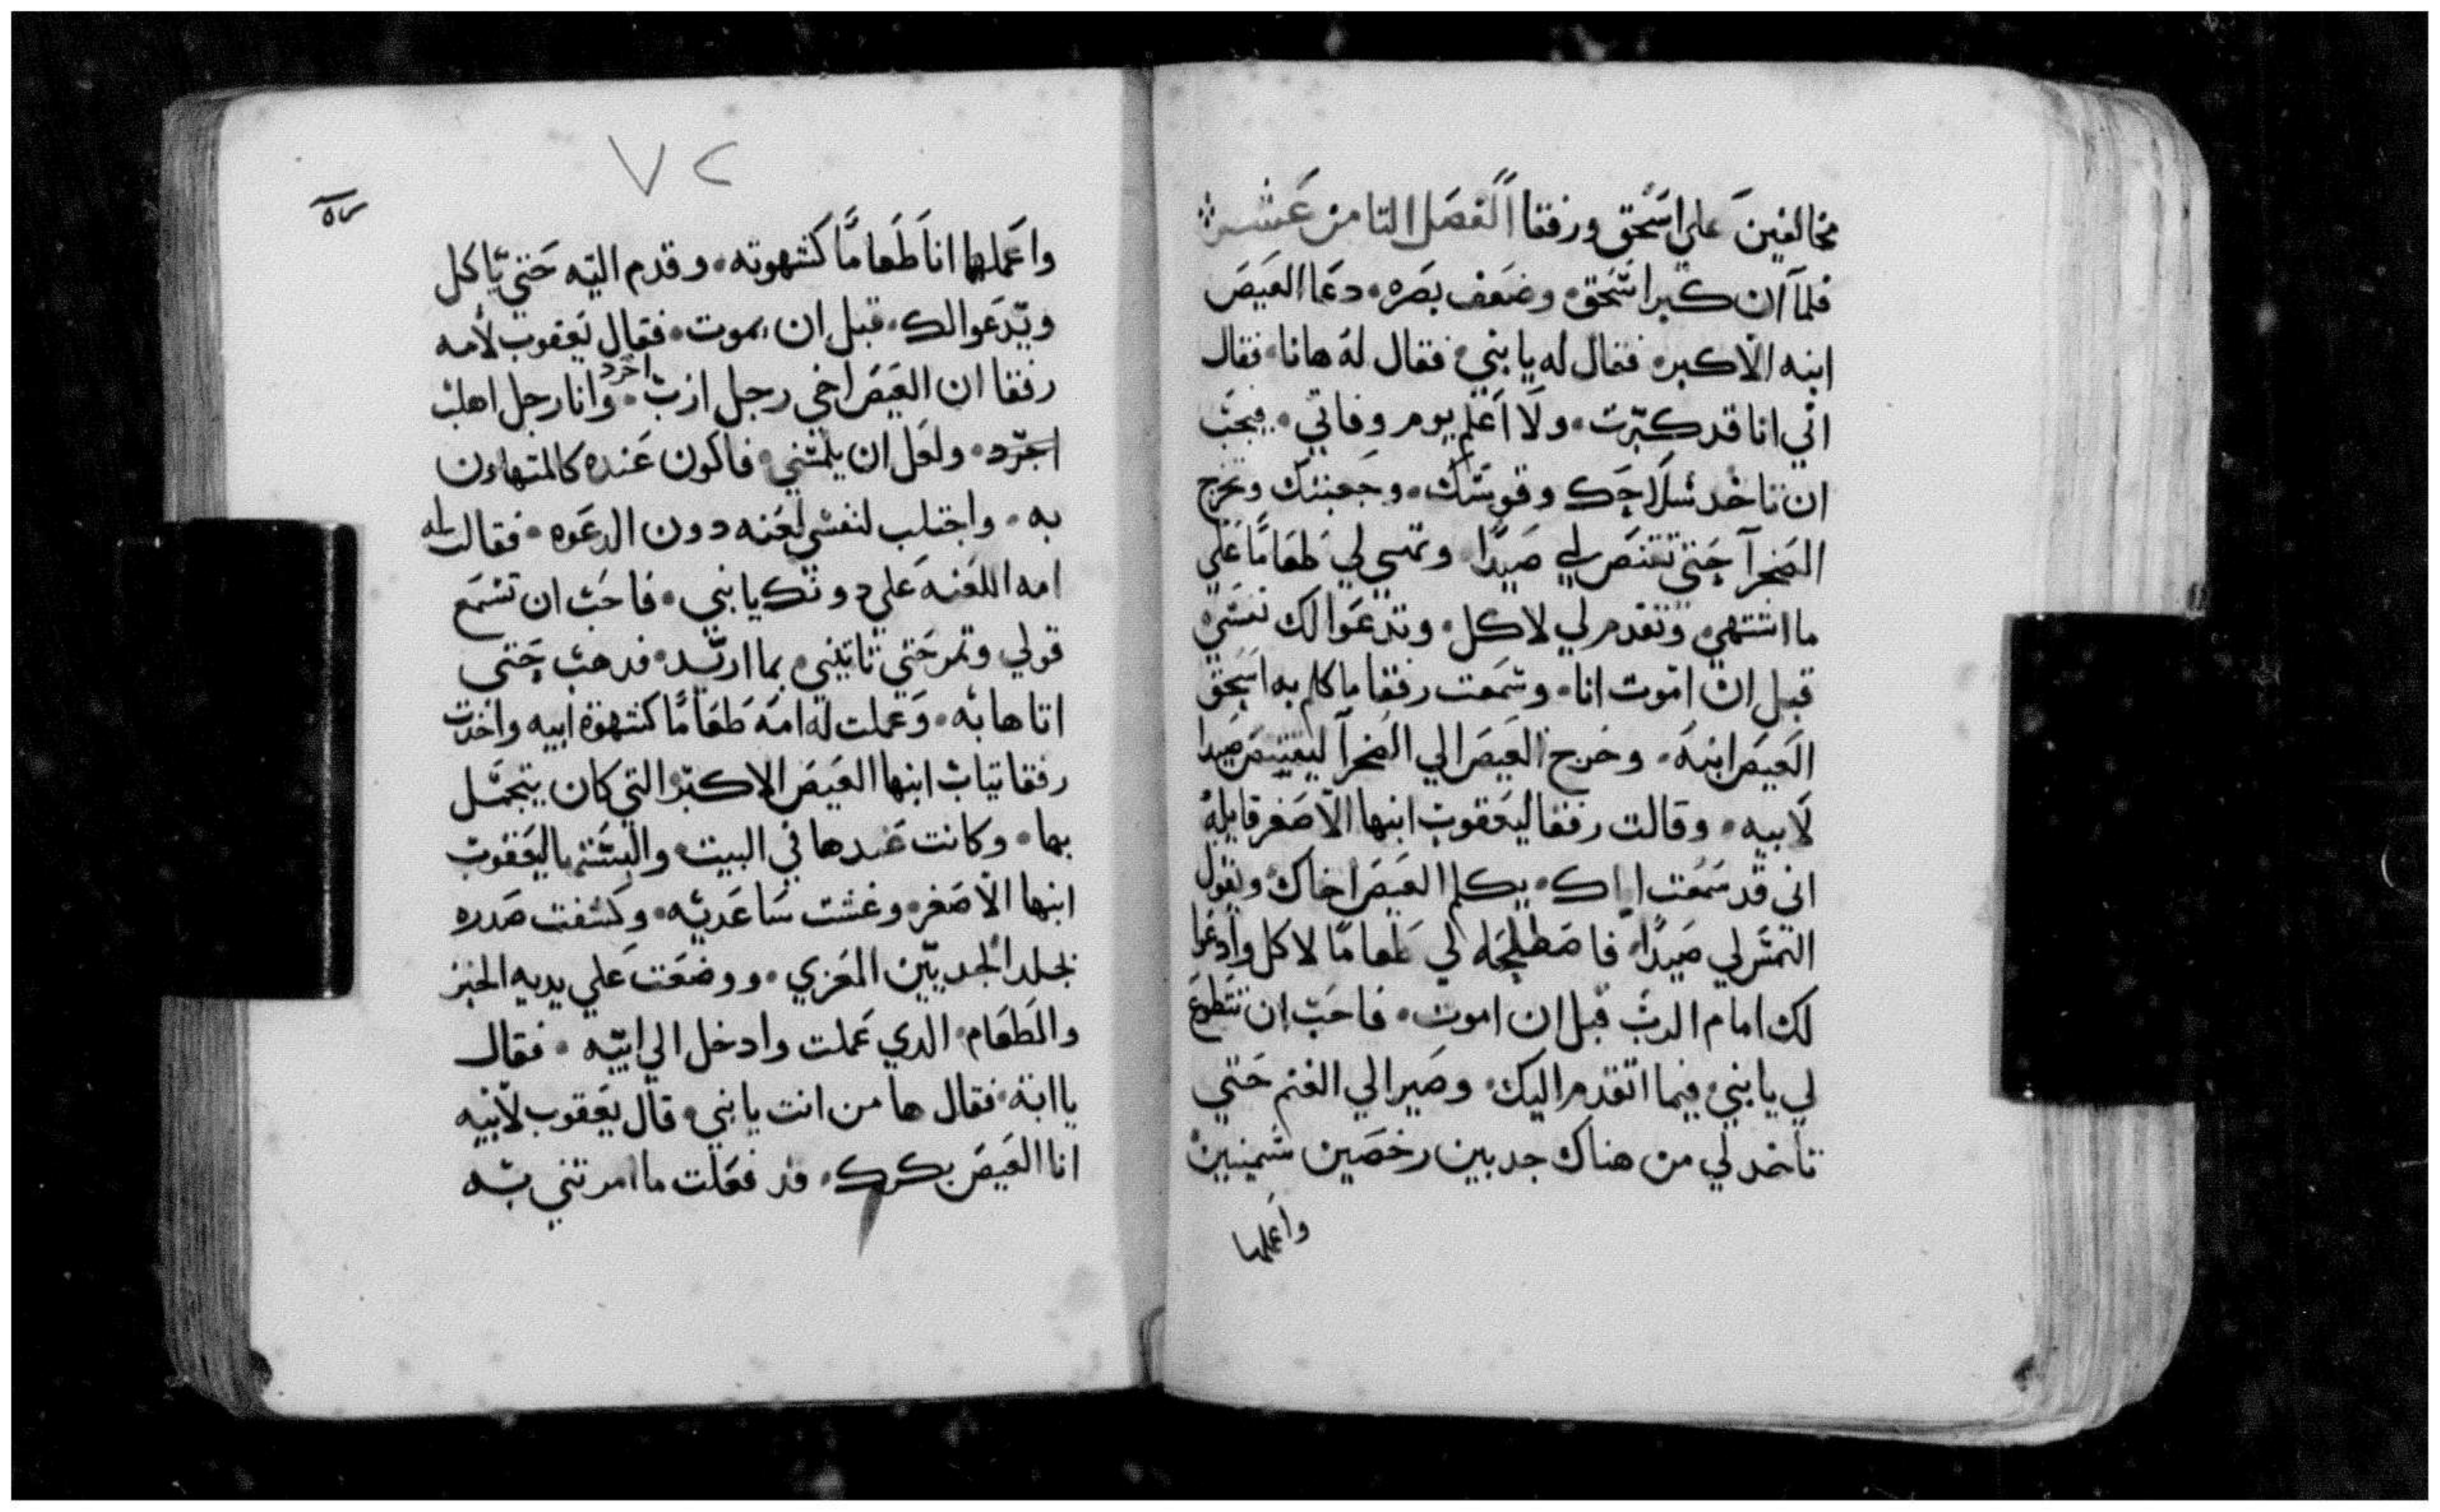 مخالفين علي اسحق ورفقا الفصل التامن عشر
فلما ان كبر اسحق وضعف بصره دعا العيص
ابنه الاكبر فقال له يا بني فقال له هانا فقال
اني انا قد كبرت ولا اعلم يوم وفاتي فيجب
ان تاخد سلاحك وقوسك وجعبتك وتخرج
الصحرآ حتي تقتنص لي صيدًا وتهيي لي طعامًا علي
ما اشتهي وتقدم لي لاكل وتدعوا لك نفسي
قبل ان اموت انا وسمعت رفقا ما كلم به اسحق
العيص ابنه وخرج العيص الي الصحرآ ليقتنص صيدا
لابيه وقالت رفقا ليعقوب ابنها الاصغر قايله
اني قد سمعت اباك يكلم العيص اخاك ويقول
التمس لي صيدًا فاصطلحه لي طعامًا لاكل وادعوا
لك امام الرب قبل ان اموت فاحب ان تتطوع
لي يا بني فيما اتقدم اليك وصير الي الغنم حتي
تاخد لي من هناك جديين رخصين سمينين
واعملها
٧٢
واعملها انا طعامًا كشهوته وقدم اليه حتي ياكل
ويدعوا لك قبل ان يموت فقال يعقوب لامه
رفقا ان العيص اخي رجل ازب وانا رجل اهلب
اجرد
اجرد ولعل ان يلمسني فاكون عنده كالمتهاون
به واجتلب لنفسي لعنه دون الدعوه فقالت له
امه اللعنه علي دونك يا بني فاحب ان تسمع
قولي وتمر حتي تاتيني بما اريد فدهب حتي
اتاها به وعملت له امه طعامًا كشهوة ابيه واخدت
رفقا تياب ابنها العيص الاكبر التي كان يتجمل
بها وكانت عندها في البيت والبستها ليعقوب
ابنها الاصغر وغشت ساعديه وكشفت صدره
بجلد الجديين المعزي ووضعت علي يديه الخبز
والطعام الدي عملت وادخل الي ابيه فقال
يا ابة فقال ها من انت يا بني قال يعقوب لابيه
انا العيص بكرك قد فعلت ما امرتني به